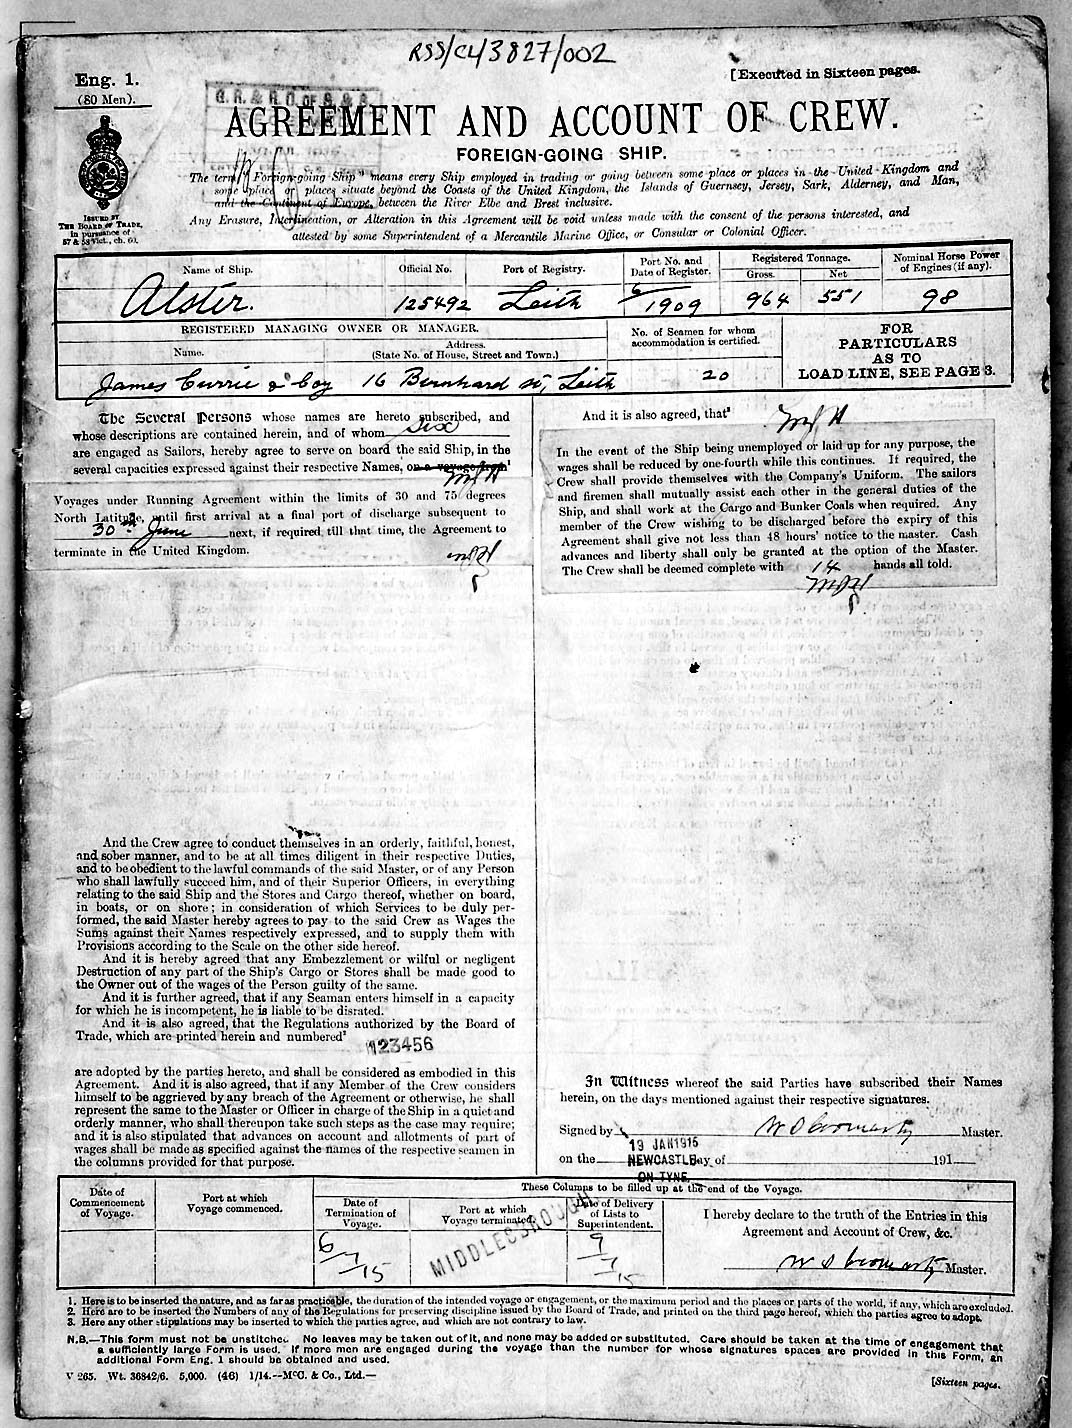 RSS/CL/3827/002
Eng. 1.
(80 Men).
[Executed in Sixteen pages.
AGREEMENT AND ACCOUNT OF CREW.
FOREIGN-GOING SHIP.
The term "Foreign-going Ship" means every Ship employed in trading or going between some place or places in the United Kingdom and
some place or places situate beyond the Coasts of the United Kingdom, the Islands of Guernsey, Jersey, Sark, Alderney, and Man,
and the Continent of Europe, between the River Elbe and Brest inclusive.
Any Erasure, Interlineation, or Alteration in this Agreement will be void unless made with the consent of the persons interested, and
attested by some Superintendent of a Mercantile Marine Office, or Consular or Colonial Officer.
ISSUED BY
THE BOARD OF TRADE,
in pursuance of
57 & 58 Vict., ch. 60.
Name of Ship.
Official No.
Port of Registry.
Port No. and
Date of Register.
Registered Tonnage.
Gross.
Net
Nominal Horse Power
of Engines (if any).
Alster.
125492
Leith
6
1909
964
551
98
REGISTERED MANAGING OWNER OR MANAGER.
Name.
Address.
(State No. of House, Street and Town.)
No. of Seamen for whom
accommodation is certified.
FOR
PARTICULARS
AS TO
LOAD LINE, SEE PAGE 3.
James Currie & Coy
16 Bernhard St, Leith
20
The Several Persons whose names are hereto subscribed, and
whose descriptions are contained herein, and of whom six
are engaged as Sailors, hereby agree to serve on board the said Ship, in the
several capacities expressed against their respective Names, on a voyage from¹
Voyages under Running Agreement within the limits of 30 and 75 degrees
North Latitude, until first arrival at a final port of discharge subsequent to
30th June next, if required till that time, the Agreement to
terminate in the United Kingdom.
And the Crew agree to conduct themselves in an orderly, faithful, honest,
and sober manner, and to be at all times diligent in their respective Duties,
and to be obedient to the lawful commands of the said Master, or of any Person
who shall lawfully succeed him, and of their Superior Officers, in everything
relating to the said Ship and the Stores and Cargo thereof, whether on board,
in boats, or on shore; in consideration of which Services to be duly per-
formed, the said Master hereby agrees to pay to the said Crew as Wages the
Sums against their Names respectively expressed, and to supply them with
Provisions according to the Scale on the other side hereof.
And it is hereby agreed that any Embezzlement or wilful or negligent
Destruction of any part of the Ship's Cargo or Stores shall be made good to
the Owner out of the wages of the Person guilty of the same.
And it is further agreed, that if any Seaman enters himself in a capacity
for which he is incompetent, he is liable to be disrated.
And it is also agreed, that the Regulations authorized by the Board of
Trade, which are printed herein and numbered²
123456
are adopted by the parties hereto, and shall be considered as embodied in this
Agreement. And it is also agreed, that if any Member of the Crew considers
himself to be aggrieved by any breach of the Agreement or otherwise, he shall
represent the same to the Master or Officer in charge of the Ship in a quiet and
orderly manner, who shall thereupon take such steps as the case may require;
and it is also stipulated that advances on account and allotments of part of
wages shall be made as specified against the names of the respective seamen in
the columns provided for that purpose.
And it is also agreed, that³
In the event of the Ship being unemployed or laid up for any purpose, the
wages shall be reduced by one-fourth while this continues. If required, the
Crew shall provide themselves with the Company's Uniform. The sailors
and firemen shall mutually assist each other in the general duties of the
Ship, and shall work at the Cargo and Bunker Coals when required. Any
member of the Crew wishing to be discharged before the expiry of this
Agreement shall give not less than 48 hours' notice to the master. Cash
advances and liberty shall only be granted at the option of the Master.
The Crew shall be deemed complete with 14 hands all told.
In Witness whereof the said Parties have subscribed their Names
herein, on the days mentioned against their respective signatures.
Signed by W S Cromarty Master.
19 JAN 1915
on the NEWCASTLE day of 191
ON TYNE.
Date of
Commencement
of Voyage.
Port at which
Voyage commenced.
These Columns to be filled up at the end of the Voyage.
Date of
Termination of
Voyage.
Port at which
Voyage terminated.
Date of Delivery
of Lists to
Superintendent.
I hereby declare to the truth of the Entries in this
Agreement and Account of Crew, &c.
6/7/15
MIDDLESBROUGH
9/7/15
W S Cromarty Master.
1. Here is to be inserted the nature, and as far as practicable, the duration of the intended voyage or engagement, or the maximum period and the places or parts of the world, if any, which are excluded.
2. Here are to be inserted the Numbers of any of the Regulations for preserving discipline issued by the Board of Trade, and printed on the third page hereof, which the parties agree to adopt.
3. Here any other stipulations may be inserted to which the parties agree, and which are not contrary to law.
N.B.—This form must not be unstitched. No leaves may be taken out of it, and none may be added or substituted. Care should be taken at the time of engagement that
a sufficiently large Form is used. If more men are engaged during the voyage than the number for whose signatures spaces are provided in this Form, an
additional Form Eng. 1 should be obtained and used.
V 265. Wt. 36842/6. 5,000. (46) 1/14.—McC. & Co., Ltd.—
[Sixteen pages.